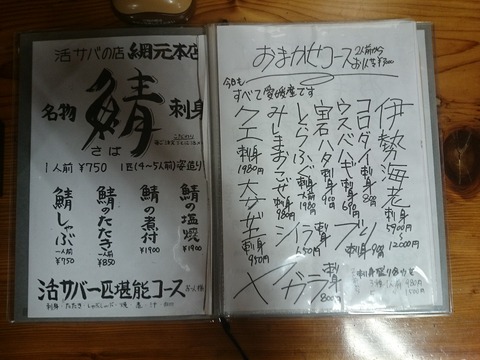 活サバの店 網元本店
名物 鯖 刺身
さば
1人前 ¥750 1匹(4~5人前)姿造り
鯖の塩焼
¥1900
鯖の煮付
¥1900
鯖のたたき
一人前
¥850
鯖しゃぶ
一人前
¥750
活サバ一匹堪能コース
おまかせコース 2人前から
今日も
すべて愛媛産です
伊勢海老
刺身
5900~
12000円
コロダイ
刺身
ウスバハギ
刺身
690円
宝石ハタ
刺身
900円
とらふぐ
刺身
一人前
1980円
みしまおこぜ
刺身
980円
クエ
刺身
1980円
ブリ
刺身
シイラ
刺身
650円
大サザエ
刺身
950円
ヤガラ
刺身
800円